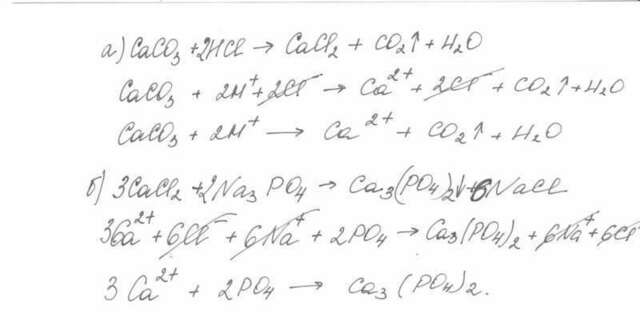 а) CaCO₃ + 2HCl → CaCl₂ + CO₂↑ + H₂O
CaCO₃ + 2H⁺ + 2Cl⁻ → Ca²⁺ + 2Cl⁻ + CO₂↑ + H₂O
CaCO₃ + 2H⁺ → Ca²⁺ + CO₂↑ + H₂O
б) 3CaCl₂ + 2Na₃PO₄ → Ca₃(PO₄)₂↓ + 6NaCl
3Ca²⁺ + 6Cl⁻ + 6Na⁺ + 2PO₄ → Ca₃(PO₄)₂ + 6Na⁺ + 6Cl⁻
3Ca²⁺ + 2PO₄ → Ca₃(PO₄)₂.